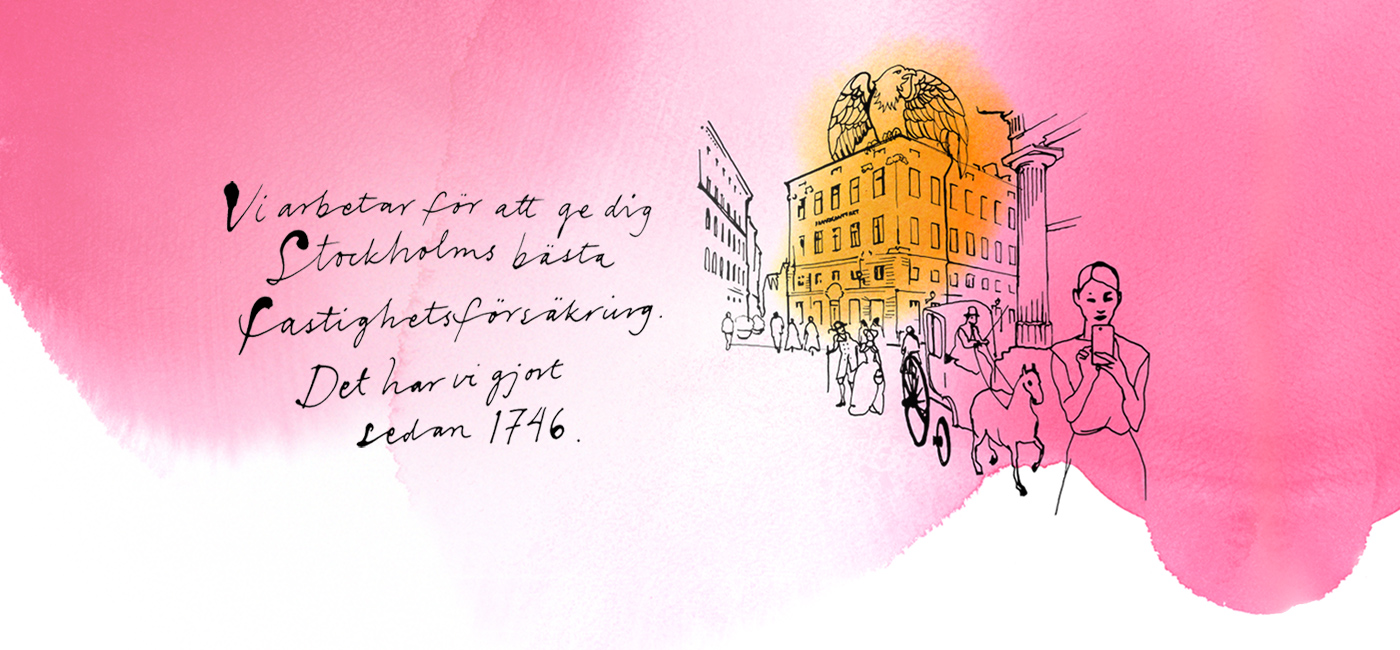 Vi arbetar för att ge dig
Stockholms bästa
fastighetsförsäkring.
Det har vi gjort
sedan 1746.